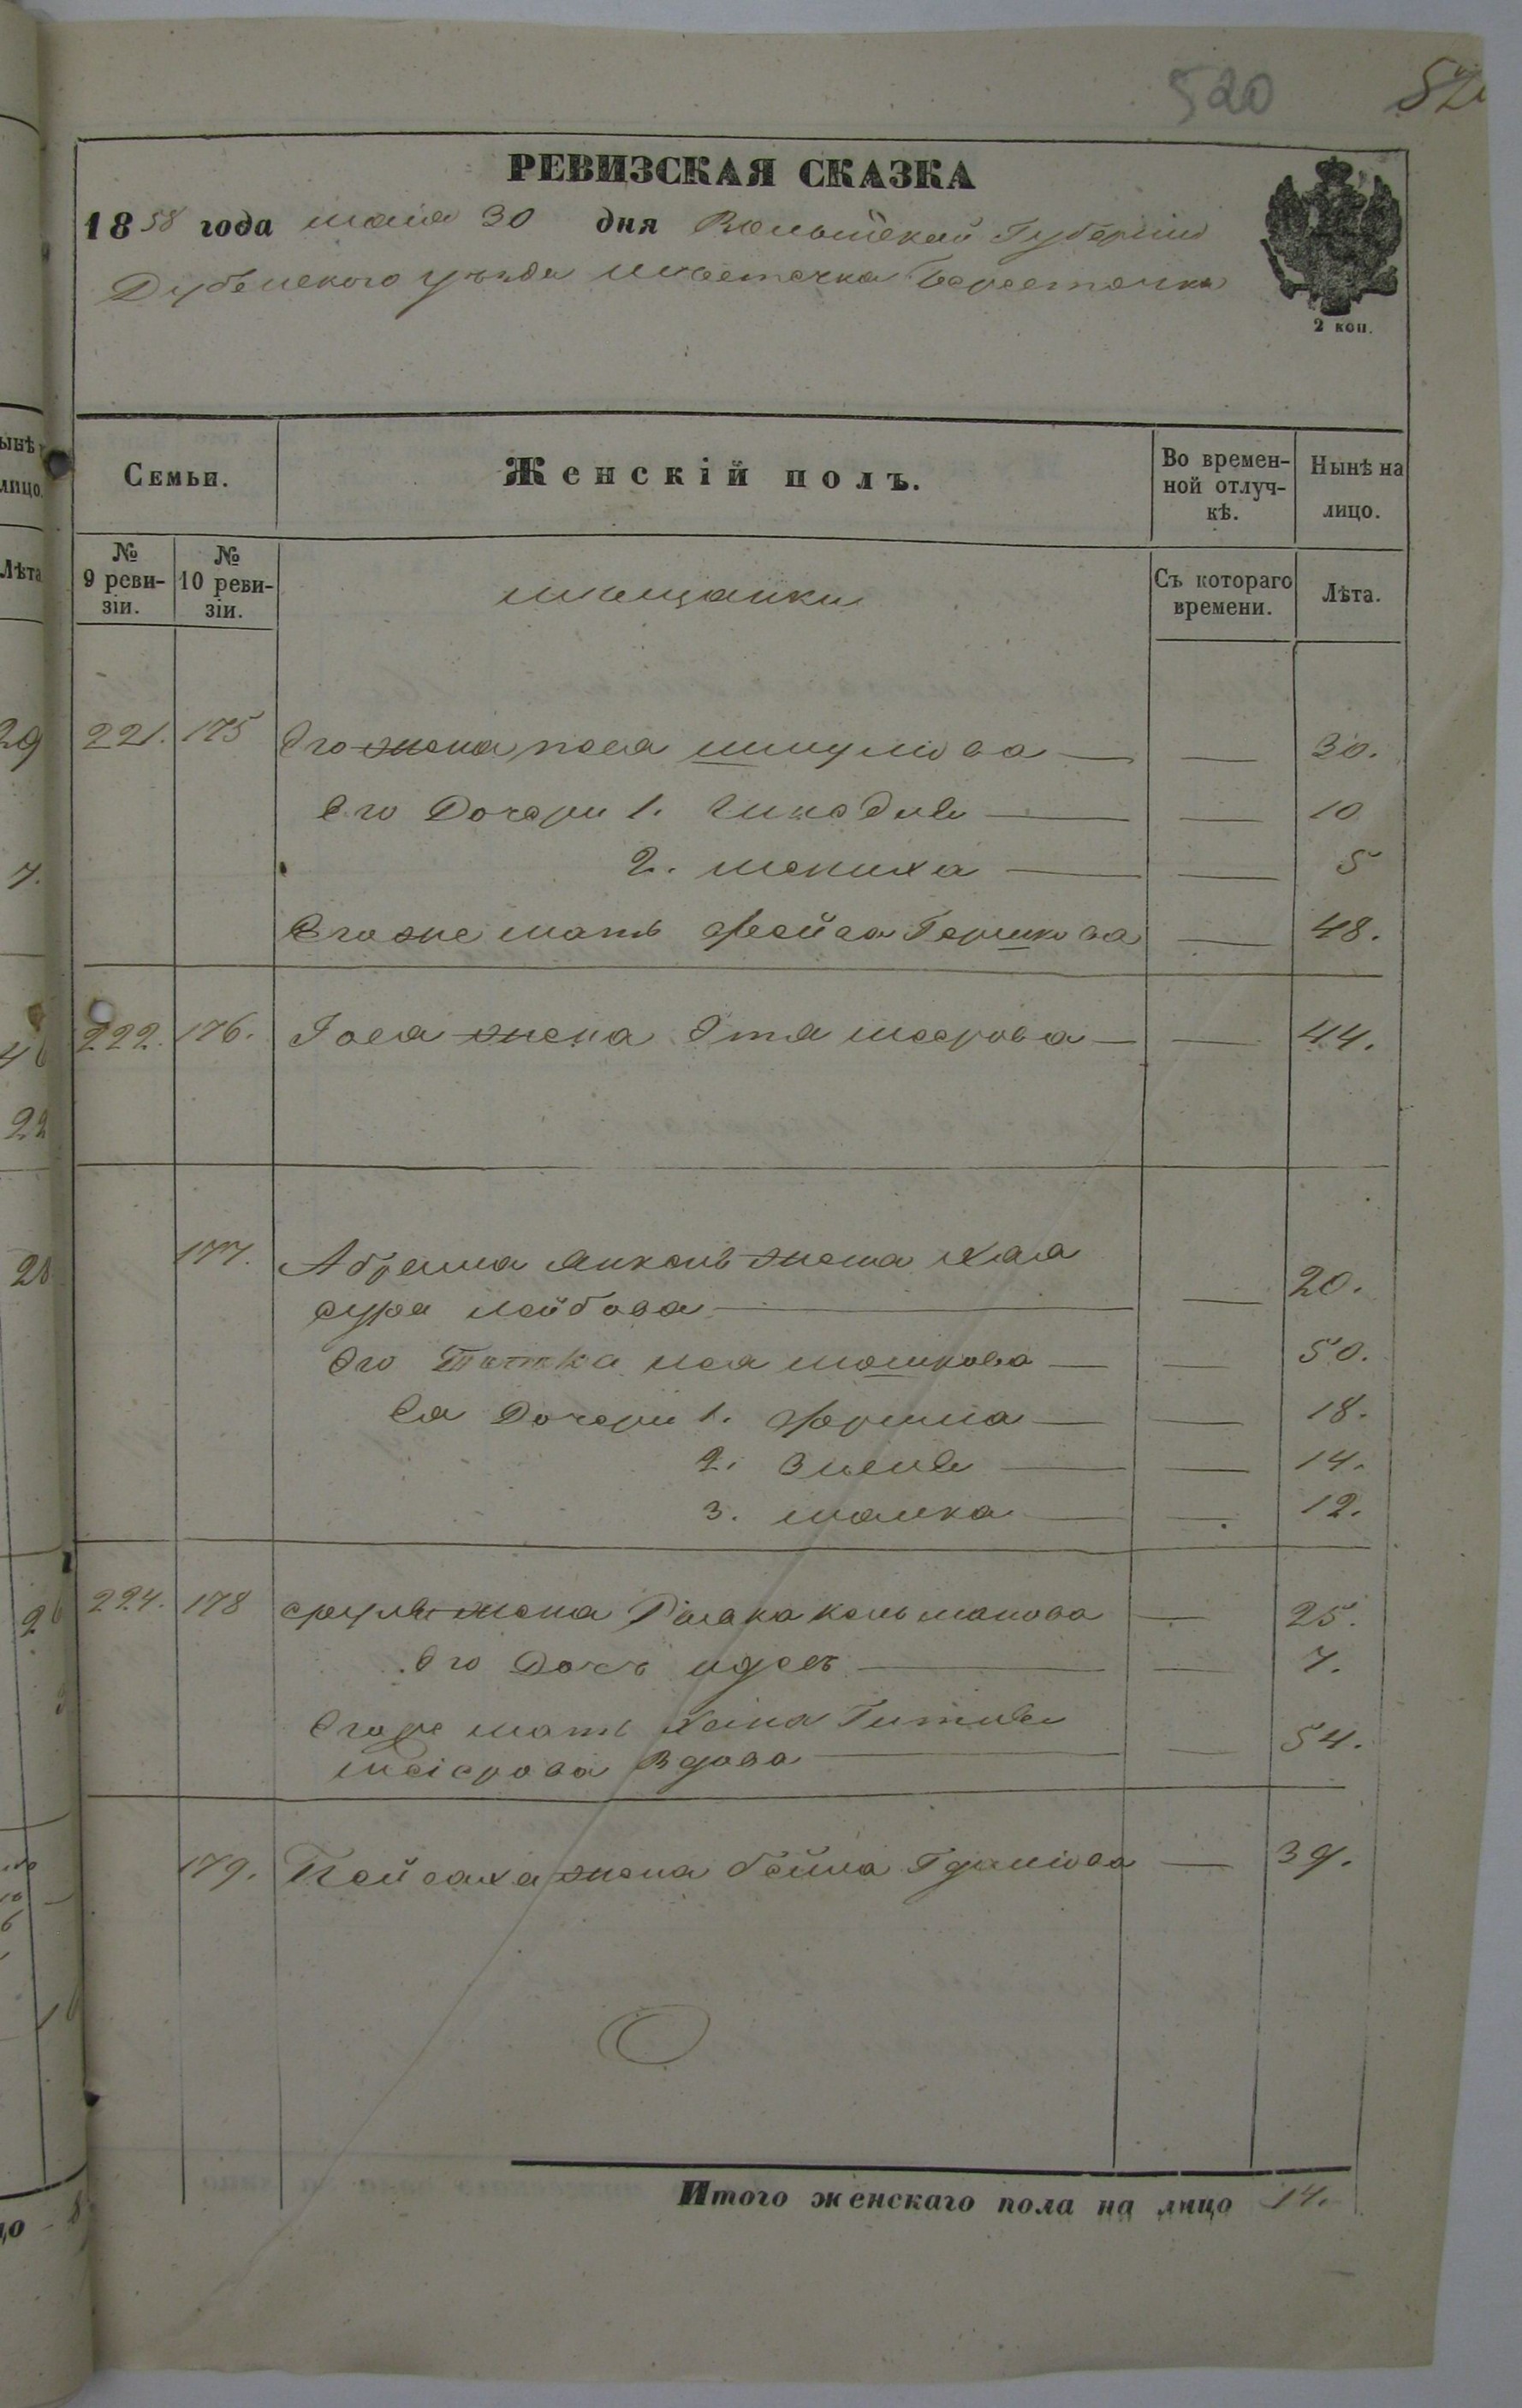 520
РЕВИЗСКАЯ СКАЗКА
1858 года мая 30 дня Волынской Губернии
Дубенского уезда местечка Берестечка
2 коп.
Семьи.
Женскій полъ.
Во времен-
ной отлуч-
кѣ.
Нынѣ на
лицо.
№
9 реви-
зіи.
№
10 реви-
зіи.
мещанки
Съ котораго
времени.
Лѣта.
221. 175 Его жена песя шмулиова — — 30.
Его Дочери 1. — — 10
2. — — 5
Егоже мать фейга Гершкова — 48.
222. 176. Іося жена Этя меерова — — 44.
177. Абрама Янкель жена Хая
сура лейбова — — 20.
Его Тетка лея мошкова — — 50.
Ея Дочери 1. фрима — — 18.
2. Зисля — — 14.
3. малка — — 12.
224. 178 сруля жена кельманова — 25.
Его Дочь идесъ — — 7.
Егоже мать Хаина Гитля
меіерова Вдова — — 54.
179. Пейсаха жена бейла — 39.
Итого женскаго пола на лицо 14.